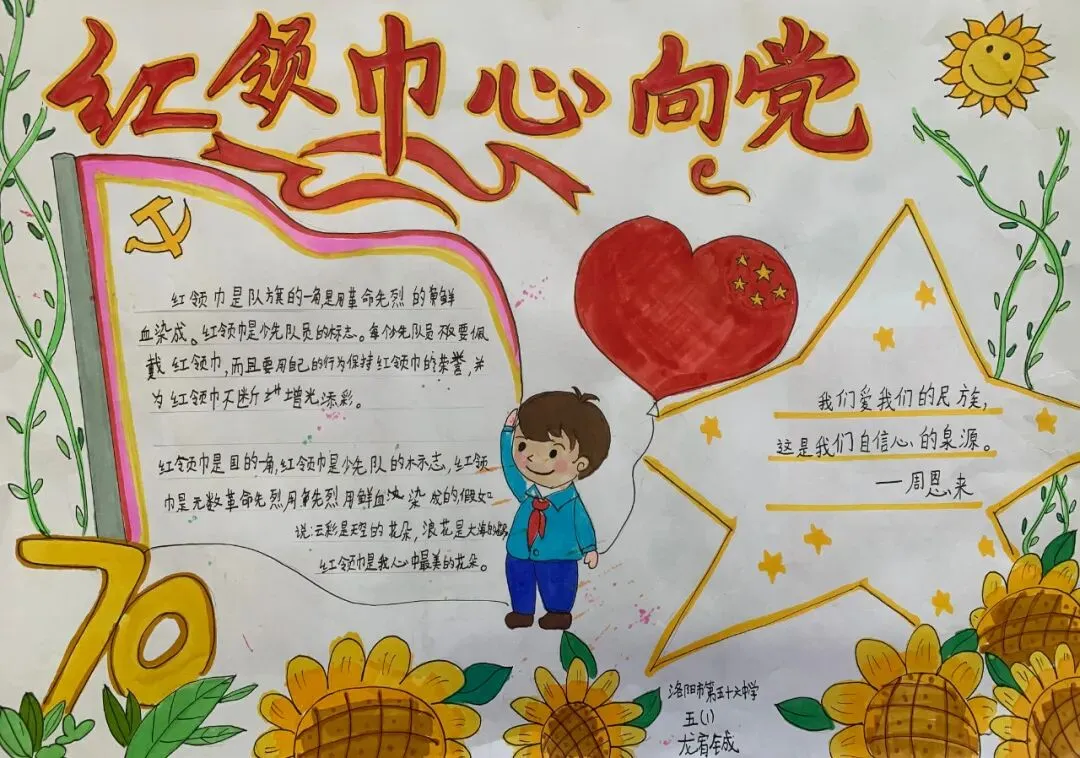 红领巾心向党
红领巾是队旗的一角是用革命先烈的鲜
血染成。红领巾是少先队员的标志。每个少先队员不仅要佩
戴红领巾,而且要用自己的行为保持红领巾的荣誉,并
为红领巾不断地增光添彩。
红领巾是国的一角,红领巾是少先队的标志,红领
巾是无数革命先烈用先烈用鲜血染成的,假如
说:云彩是天空的花朵,浪花是大海的
红领巾是我心中最美的花朵。
70
我们爱我们的民族,
这是我们自信心的泉源。
—周恩来
洛阳市第五十六中学
五(1)
龙